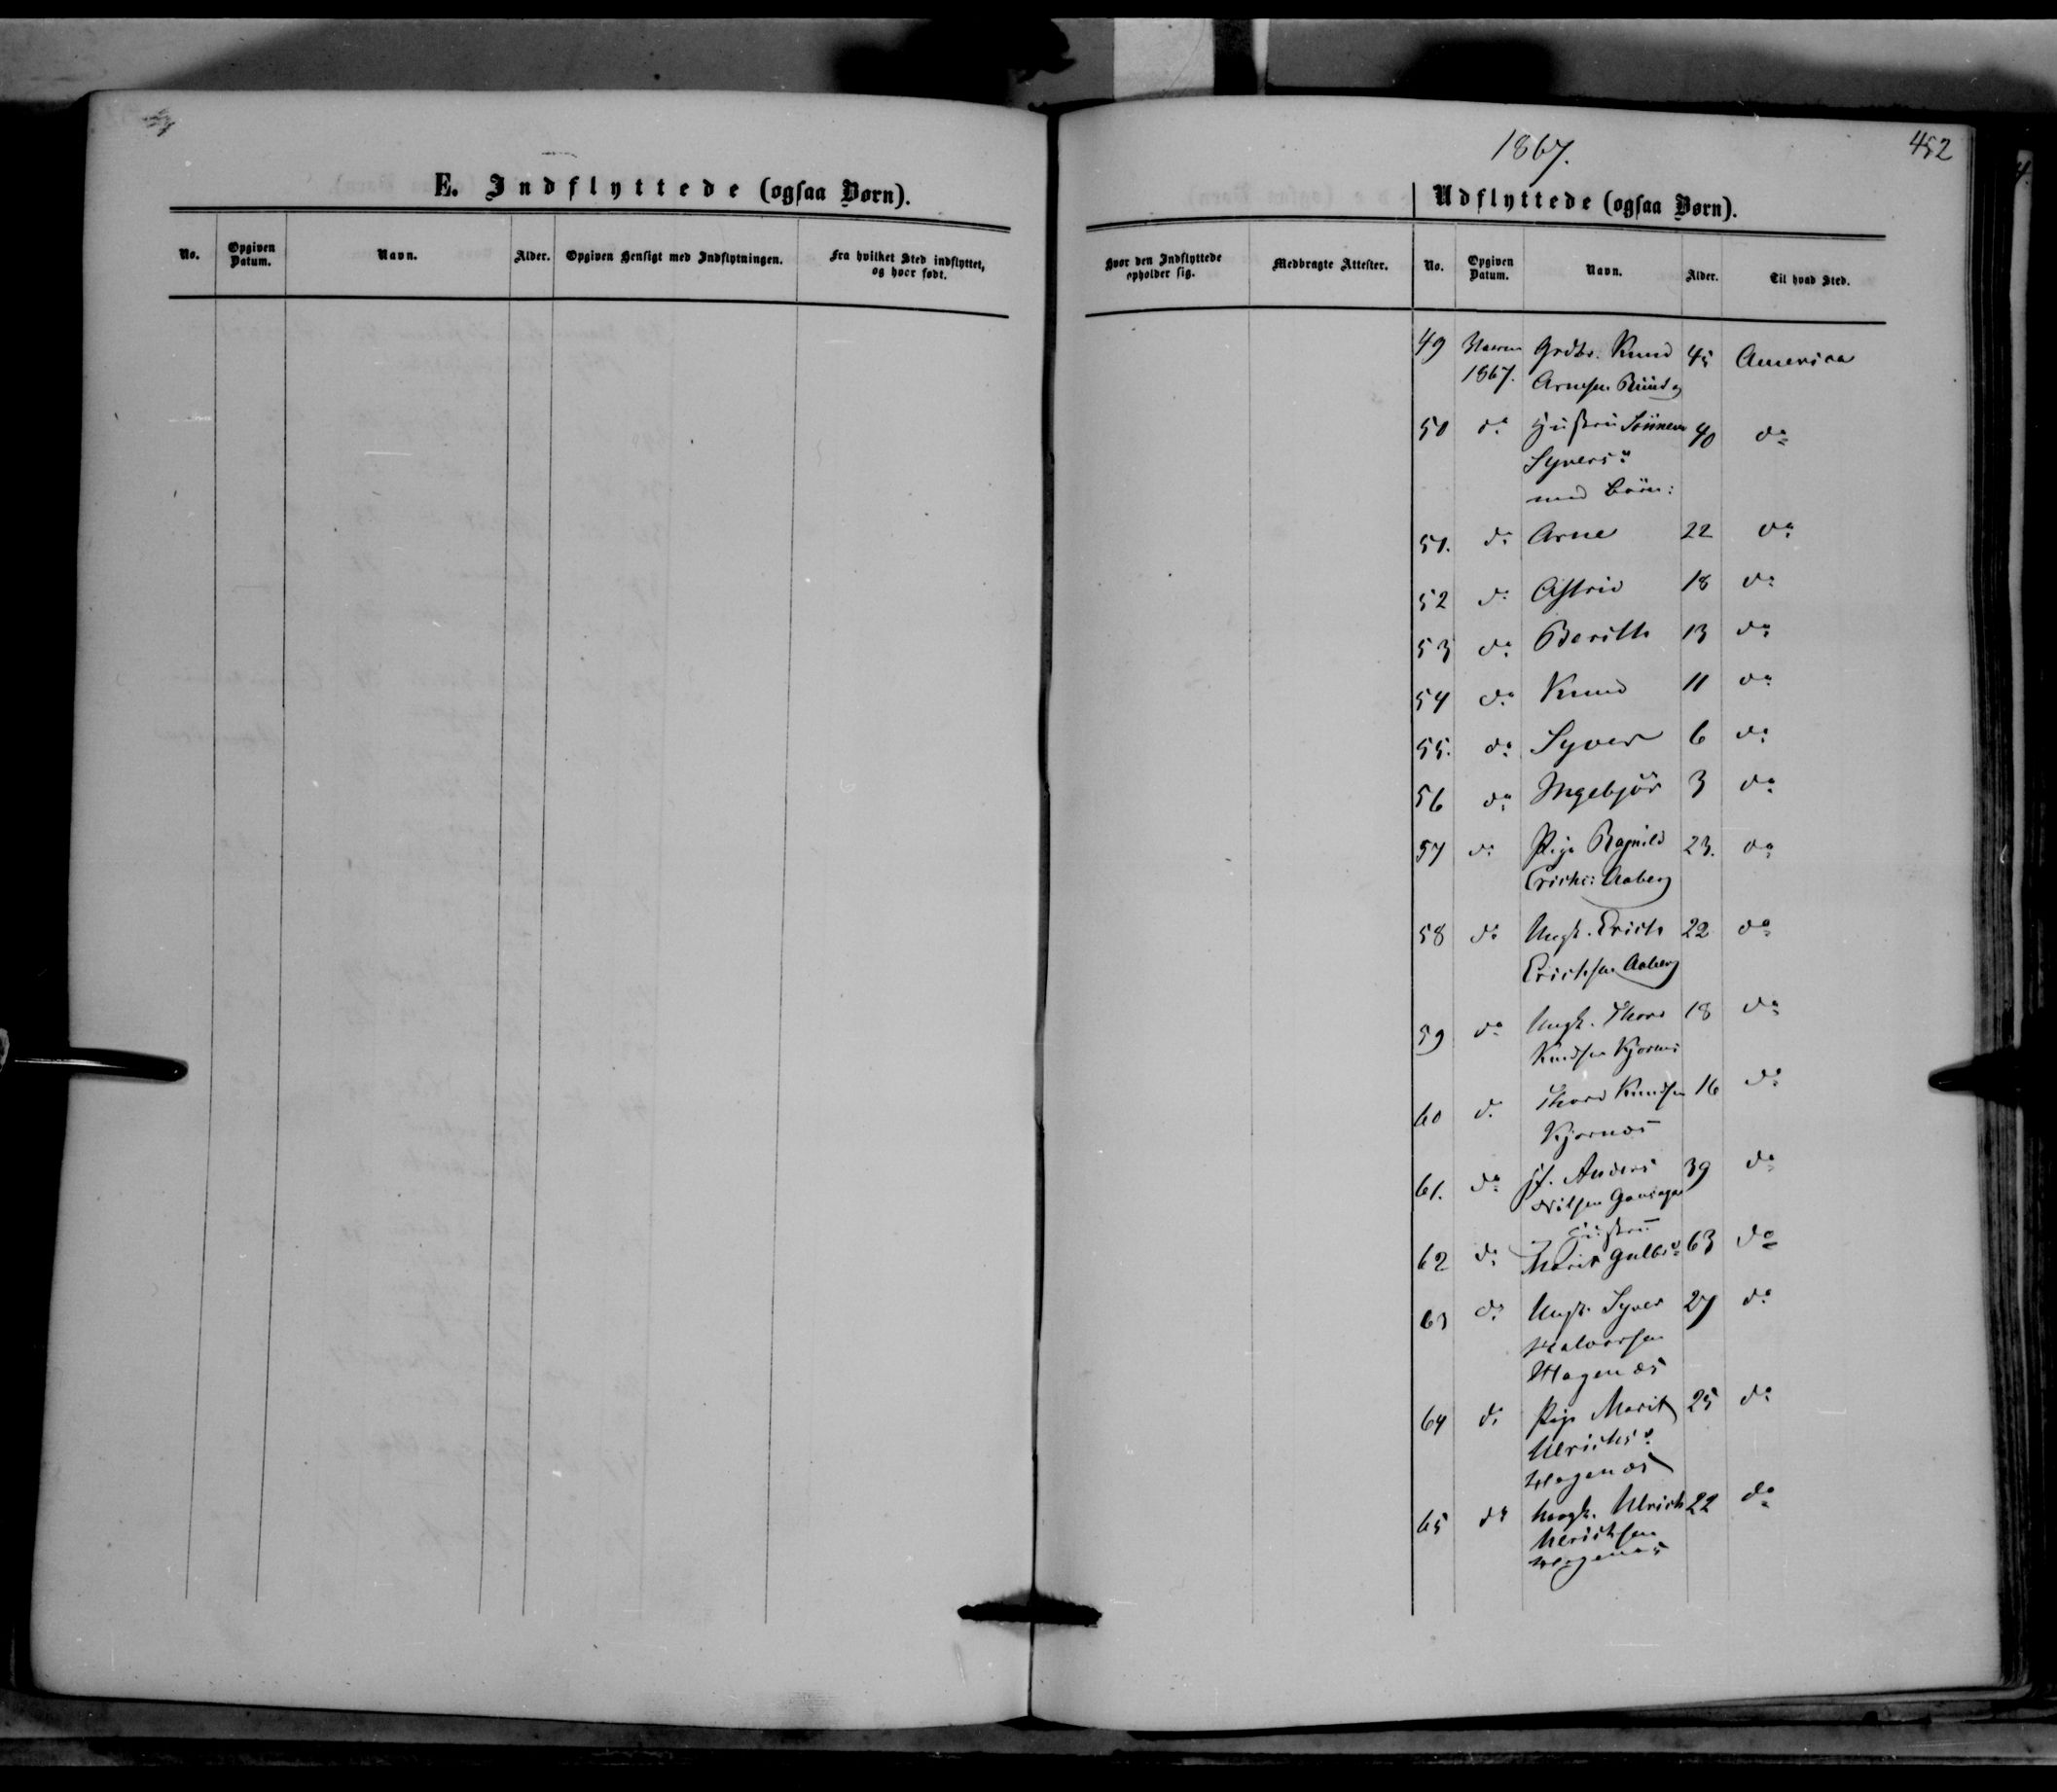 1867.
452
E. Indflyttede (ogsaa Børn).
No. Opgiven Datum. Navn. Alder. Opgiven Hensigt med Indflytningen. Fra hvilket Sted indflyttet, og hvor født.
Udflyttede (ogsaa Børn).
Hvor den Indflyttede opholder sig. Medbragte Attester. No. Opgiven Datum. Navn. Alder. Til hvad Sted.
49 Grdbr. Knud 45 America
1867. Arnesen
50 do Hustru Sünneva 40 do
Syversd
med Börn:
51. do Arne 22 do
52 do Astrid 18 do
53 do Berith 13 do
54 do Knud 11 do
55. do Syver 6 do
56 do Ingebjör 3 do
57 do Pige Ragnild 23. do
Erichs: Aaberg
58 do Ungk. Erich 22 do
Erichsen Aaberg
59 do Ungk. Thord 18 do
Knudsen Kjørnæs
60 do Thord Knudsen 16 do
Kjørnæs
61. do Anders 39 do
Nilsen
62 do Hustru
Marit Gulbrd 63 do
63 do Ungk. Syver 27 do
Halvorsen
Hagenæs
64 do Pige Marit 25 do
Ulrichsd
Hagenæs
65 do Ungk. Ulrich 22 do
Ulrichsen
Hagenæs